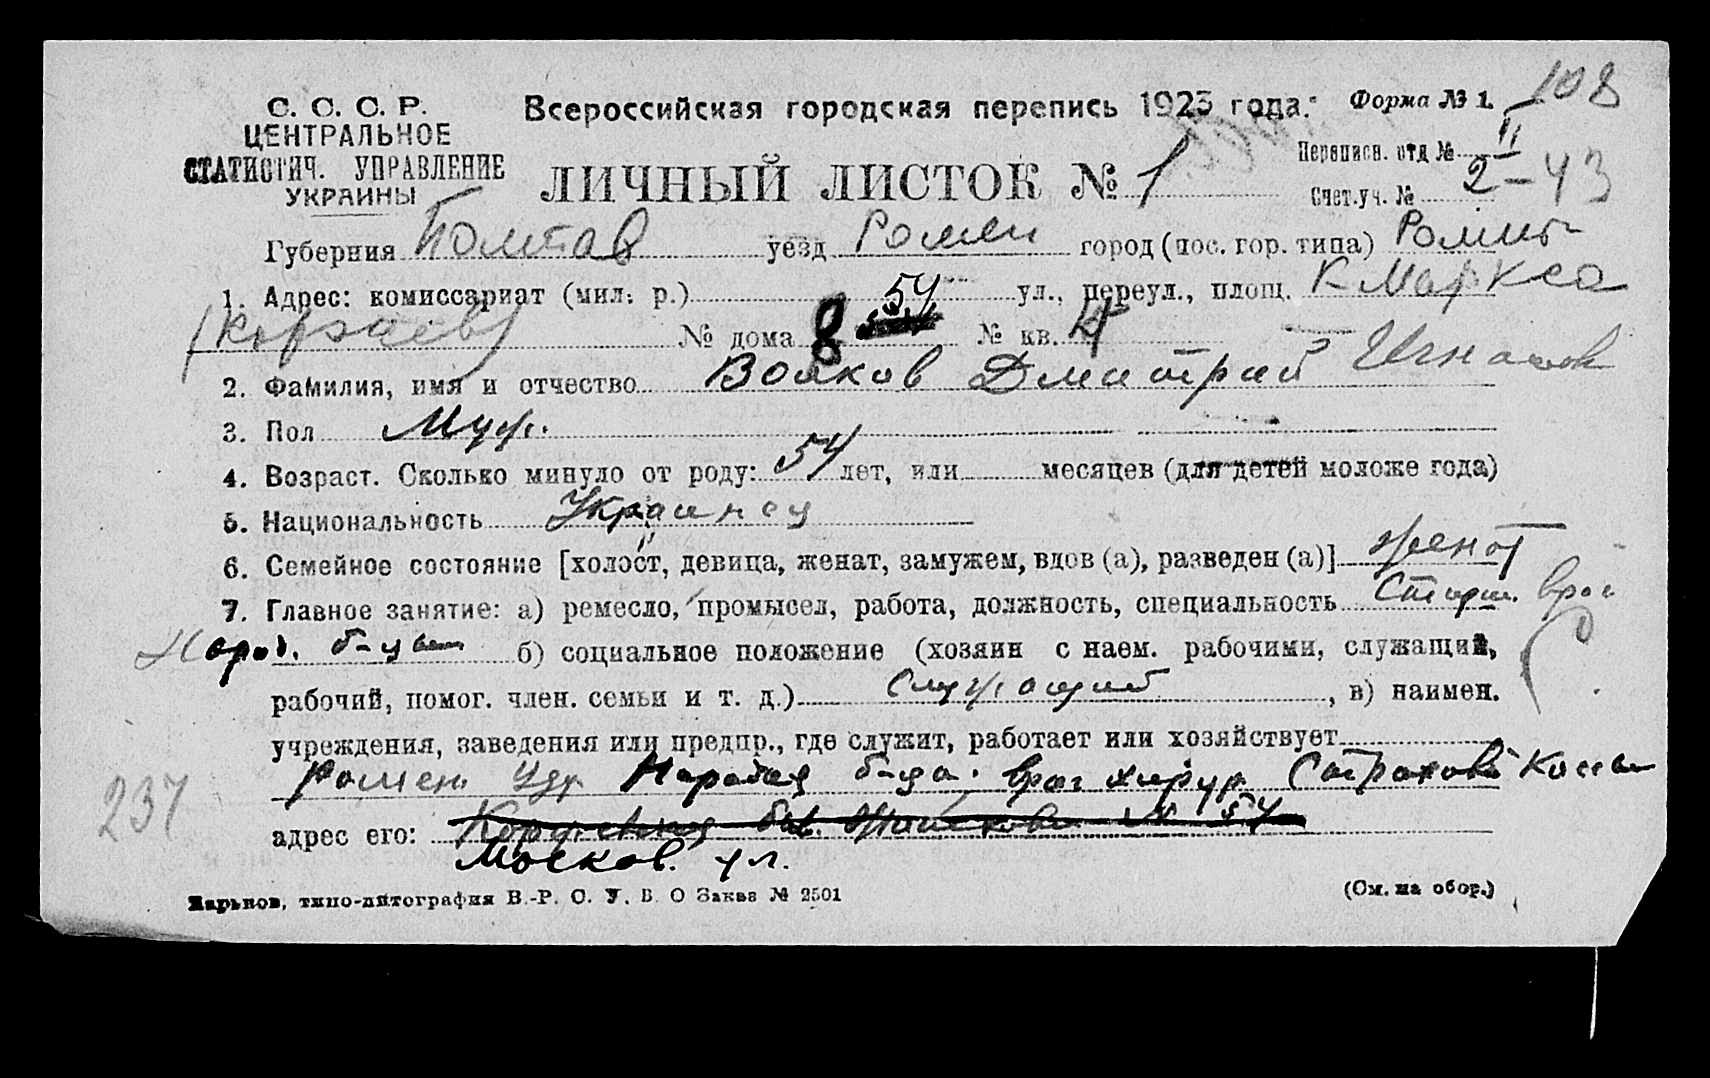 С. С. С. Р.
ЦЕНТРАЛЬНОЕ
СТАТИСТИЧ. УПРАВЛЕНИЕ
УКРАИНЫ
Всероссийская городская перепись 1923 года. Форма № 1.
108
ЛИЧНЫЙ ЛИСТОК № 1
Переписн. отд № II
Счет.уч. № 2-43
Губерния Полтав уезд Ромен город (пос. гор. типа) Ромны
1. Адрес: комиссариат (мил. р.) 54 ул., переул., площ. К Маркса
№ дома 8 № кв. 4
2. Фамилия, имя и отчество Волков Дмитрий Игнатов
3. Пол Муж.
4. Возраст. Сколько минуло от роду: 54 лет, или месяцев (для детей моложе года)
5. Национальность Украинец
6. Семейное состояние [холост, девица, женат, замужем, вдов (а), разведен (а)] женат
7. Главное занятие: а) ремесло, промысел, работа, должность, специальность Старш. врач
Народ. б-цы б) социальное положение (хозяин с наем. рабочими, служащий,
рабочий, помог. член. семьи и т. д.) Служащий, в) наимен.
учреждения, заведения или предпр., где служит, работает или хозяйствует
Ромен Народная б-ца. врач хирур. Страховой Кассы
адрес его: № 54
Москов. ул.
237
Харьков, типо-литография В.-Р. С. У. В. О Заказ № 2501
(См. на обор.)